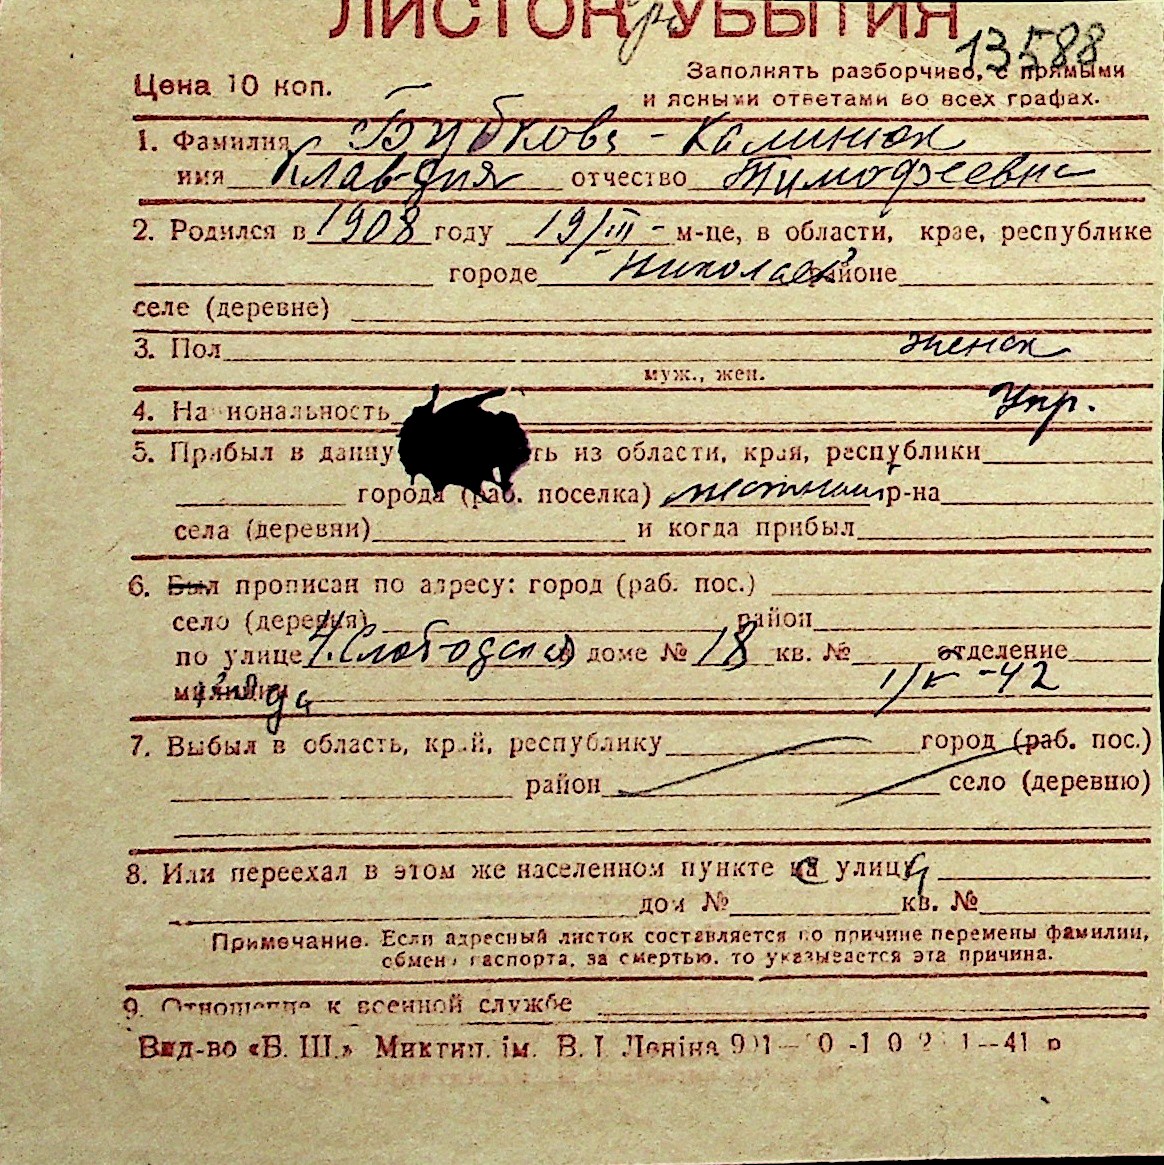 ЛИСТОК УБЫТИЯ
13588
Цена 10 коп.
Заполнять разборчиво, с прямыми
и ясными ответами во всех графах.
1. Фамилия Бубкова - Калинюк
имя Клавдия отчество Тимофеевна
2. Родился в 1908 году 19/III - м-це, в области, крае, республике
городе Николаев районе
селе (деревне)
3. Пол женск
муж., жен.
4. Национальность Укр.
5. Прибыл в данну ть из области, края, республики
города (раб. поселка) местная р-на
села (деревни) и когда прибыл
6. Был прописан по адресу: город (раб. пос.)
село (деревня) район
по улице Слободская доме № 18 кв. № отделение
милиции 1/V-42
7. Выбыл в область, край, республику город (раб. пос.)
район село (деревню)
8. Или переехал в этом же населенном пункте на улицу
дом № кв. №
Примечание. Если адресный листок составляется по причине перемены фамилии,
обмена паспорта, за смертью, то указывается эта причина.
9. Отношение к военной службе
Вид-во «Б. Ш.» Миктип. ім. В. І. Леніна